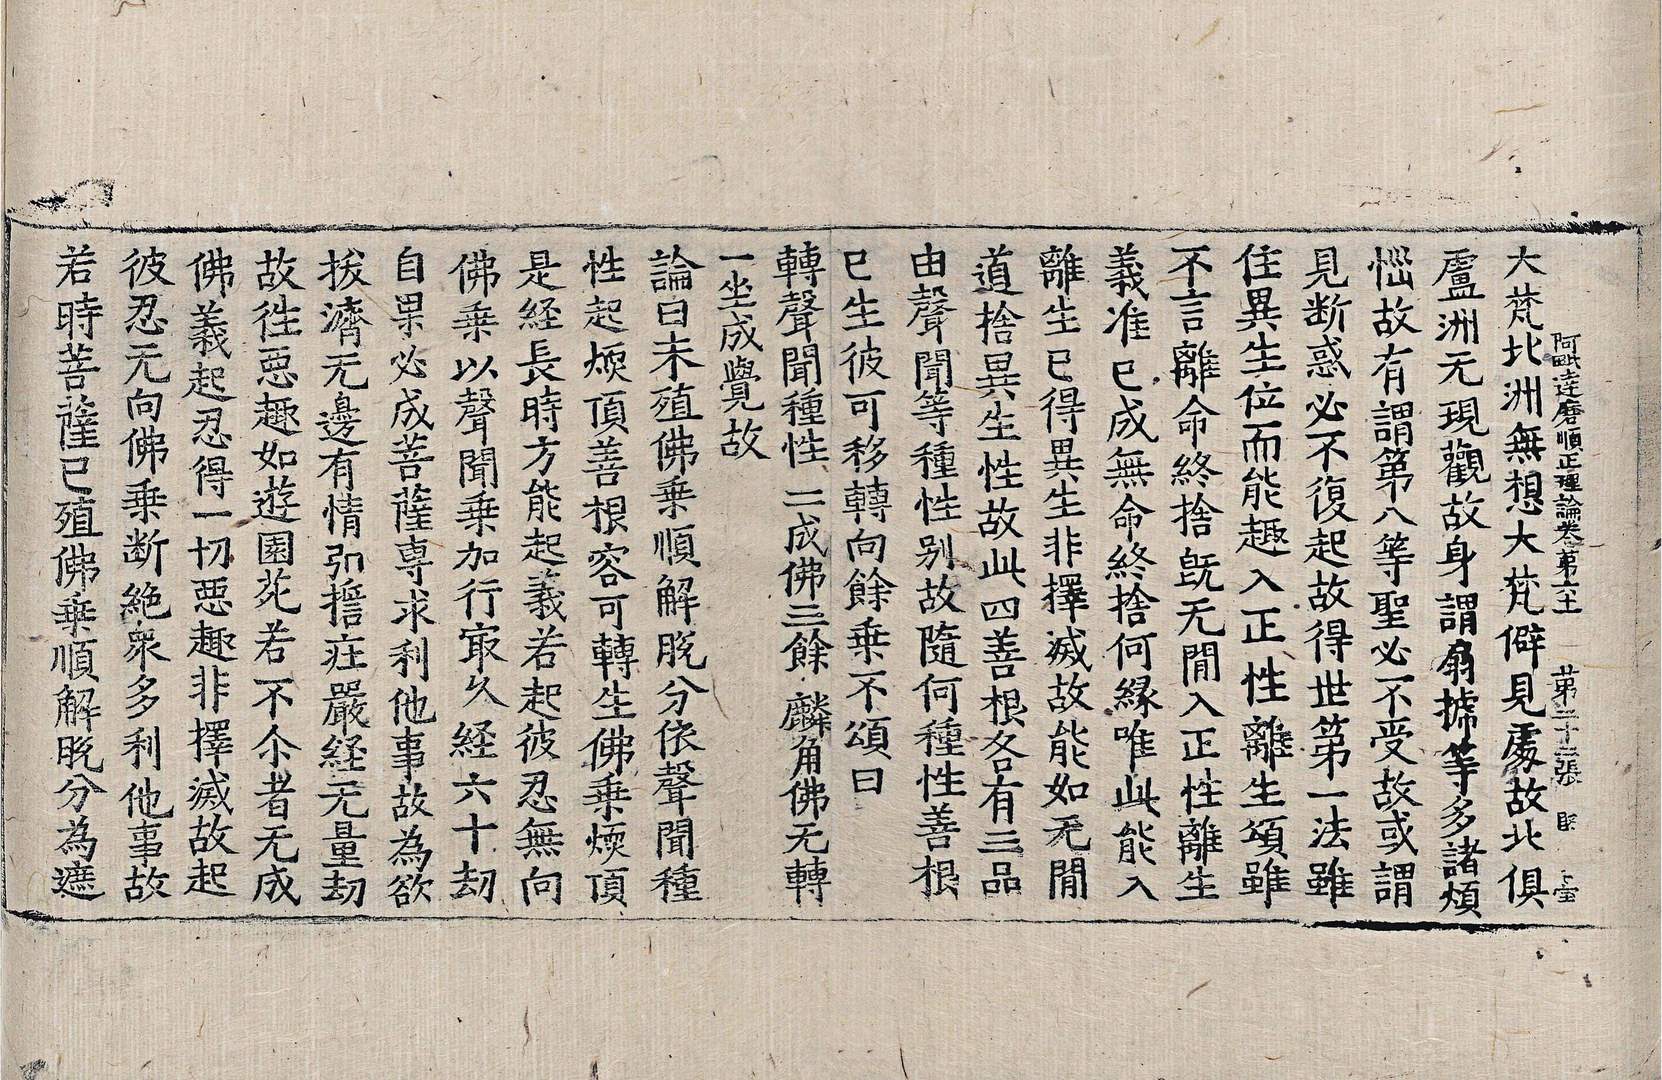 阿毗達磨順正理論卷第六十一 第二十二張
大梵北洲無想大梵僻見處故北俱
盧洲无現觀故身謂扇搋等多諸煩
惱故有謂第八等聖必不受故或謂
見断惑必不復起故得世第一法雖
住異生位而能趣入正性離生頌雖
不言離命終捨旣无閒入正性離生
義准已成無命終捨何緣唯此能入
離生已得異生非擇滅故能如无閒
道捨異生性故此四善根各有三品
由聲聞等種性别故隨何種性善根
已生彼可移轉向餘乗不頌曰
轉聲聞種性 二成佛三餘 麟角佛无轉
一坐成覺故
論曰未殖佛乗順解脫分依聲聞種
性起煗頂善根容可轉生佛乗煗頂
是経長時方能起義若起彼忍無向
佛乗以聲聞乗加行㝡久経六十劫
自果必成菩薩専求利他事故為欲
拔濟无邊有情弘誓莊嚴経无量劫
故徃𢙣趣如遊園苑若不尒者无成
佛義起忍得一切𢙣趣非擇滅故起
彼忍无向佛乗断絶衆多利他事故
若時菩薩已殖佛乗順解脫分為遮